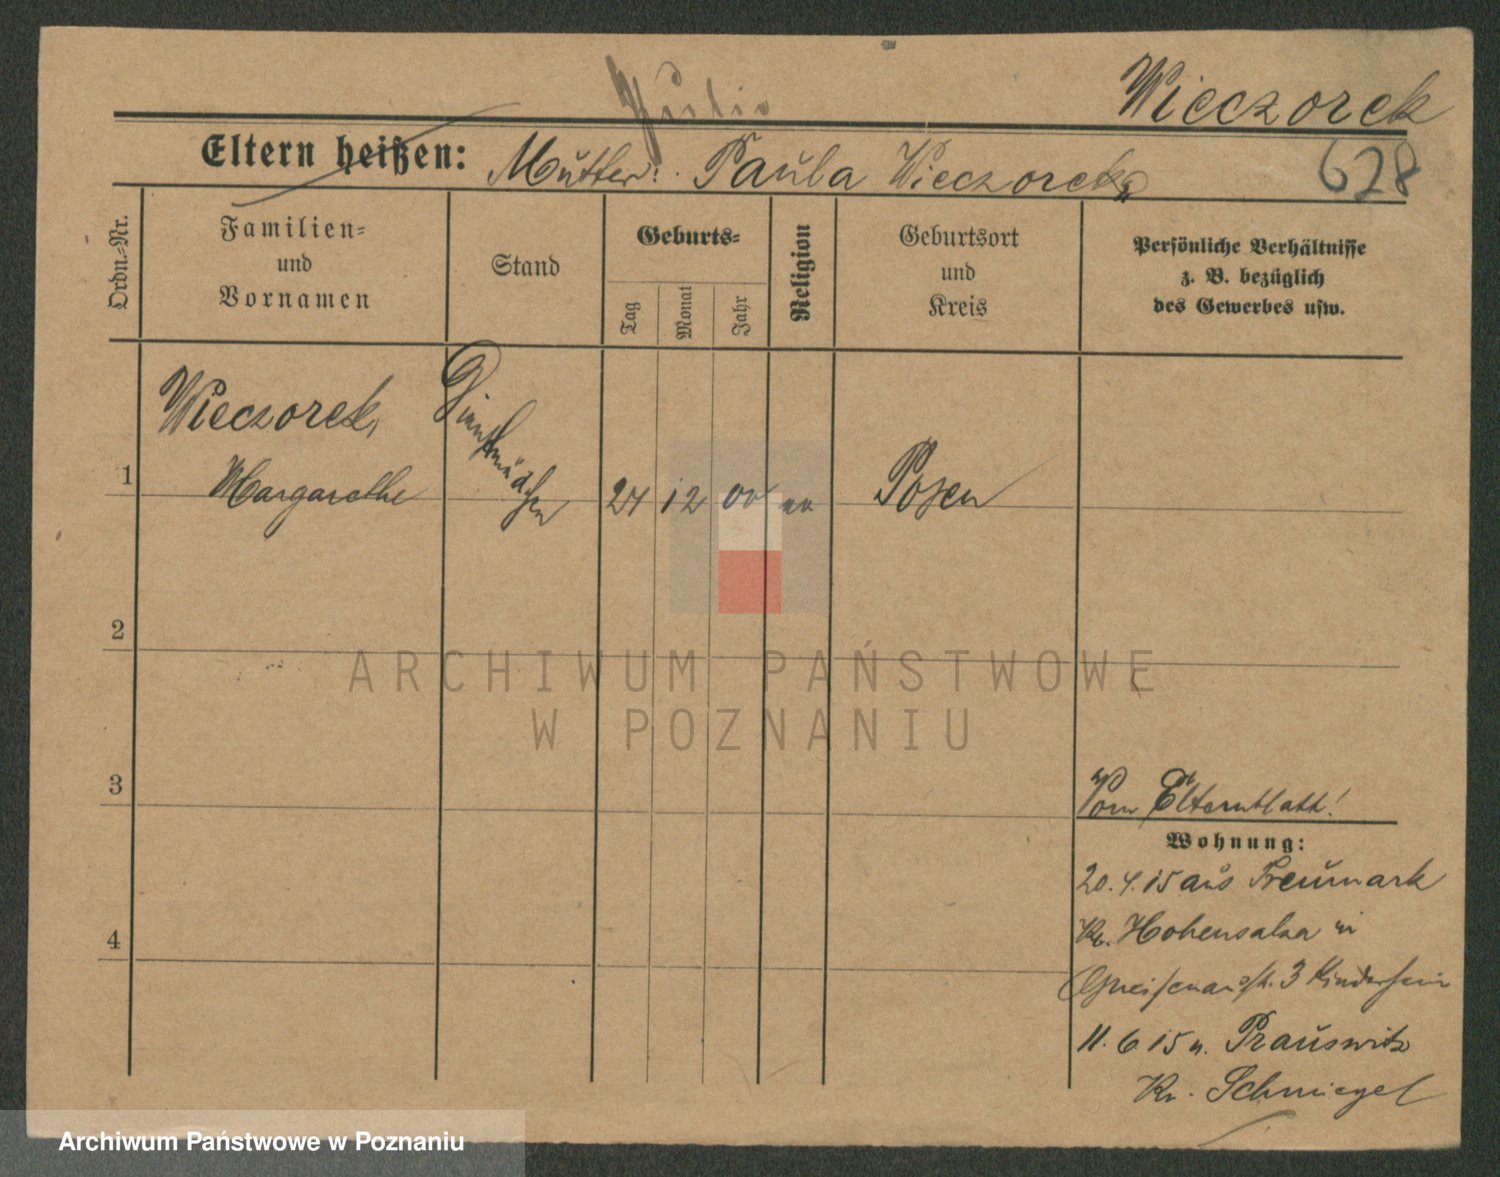 Wieczorek
628
Eltern heißen: Mutter: Paula Wieczorek
Ordn.-Nr.
Familien-
und
Vornamen
Stand
Geburts-
Tag
Monat
Jahr
Religion
Geburtsort
und
Kreis
Persönliche Verhältnisse
z. B. bezüglich
des Gewerbes usw.
1
Wieczorek,
Margarethe
Dienstmädchen
24 12 00
Posen
2
3
4
Vom Elternblatt!
Wohnung:
20.4.15 aus
Kr. Hohensalza in
Gneisenaustr. 3 Kinderheim
11.6.15 n. Prauswitz
Kr. Schmiegel
ARCHIWUM PAŃSTWOWE
W POZNANIU
Archiwum Państwowe w Poznaniu